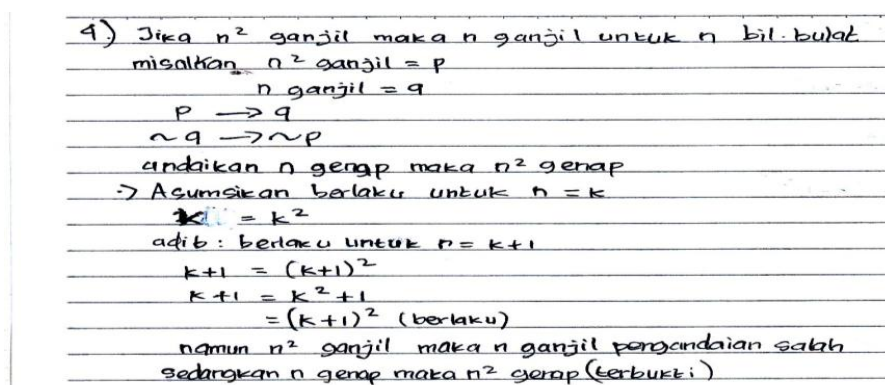 4.) Jika n² ganjil maka n ganjil untuk n bil. bulat
misalkan n² ganjil = p
n ganjil = q
p → q
~q → ~p
andaikan n genap maka n² genap
-> Asumsikan berlaku untuk n = k
k = k²
adib : berlaku untuk n = k+1
k+1 = (k+1)²
k+1 = k²+1
= (k+1)² (berlaku)
namun n² ganjil maka n ganjil pengandaian salah
sedangkan n genap maka n² genap (terbukti)